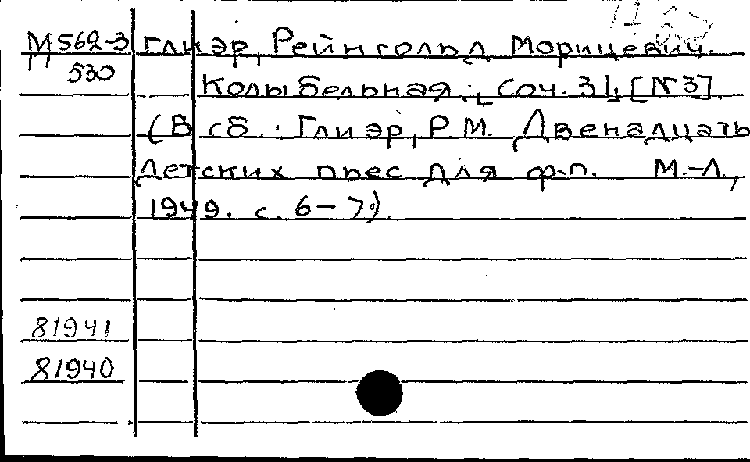 М 562-3 Глиэр, Рейнгольд Морицевич.
530 Колыбельная. [Соч. 31, [N 3]
(В сб.: Глиэр, Р.М. Двенадцать
детских пьес для ф-п. М.-Л.,
1949. с. 6-7.).
81941
81940